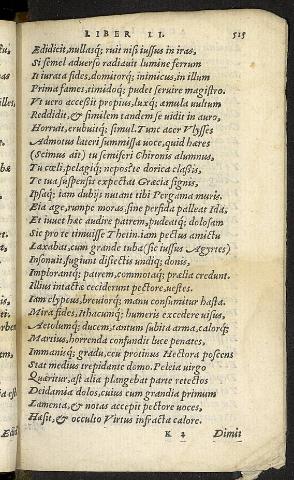 LIBER II. 515
Edidicit, nullasq; ruit nisi iussus in iras,
Si semel aduerso radiauit lumine ferrum
It iurata fides, domitorq; inimicus, in illum
Prima fames, timidoq; pudet seruire magistro.
Vt uero accessit propius, luxq; æmula uultum
Reddidit, & similem tandem se uidit in auro,
Horruit, erubuitq; simul. Tunc acer Vlysses
Admotus lateri summissa uoce, quid hæres
(Scimus ait) tu semiferi Chironis alumnus,
Tu cœli, pelagiq; nepos? te dorica classis,
Te tua suspensis expectat Græcia signis,
Ipsaq; iam dubijs nutant tibi Pergama muris.
Eia age, rumpe moras. sine perfida palleat Ida,
Et iuuet hæc audire patrem, pudeatq; dolosam
Sic pro te timuisse Thetin. iam pectus amictu
Laxabat, cum grande tuba (sic iussus Agyrtes)
Insonuit, fugiunt disiectis undiq; donis,
Implorantq; patrem, commotaq; prælia credunt.
Illius intactæ ceciderunt pectore, uestes.
Iam clypeus, breuiorq; manu consumitur hasta.
Mira fides, Ithacumq; humeris excedere uisus,
Aetolumq; ducem, tantum subita arma, calorq;
Martius, horrenda confundit luce penates,
Immanisq; gradu, ceu protinus Hectora poscens
Stat medius trepidante domo. Peleia uirgo
Quæritur, ast alia plangebat parte retectos
Deidamia dolos, cuius cum grandia primum
Lamenta, & notas accepit pectore uoces,
Hæsit, & occulto Virtus infracta calore.
K 2 Dimit